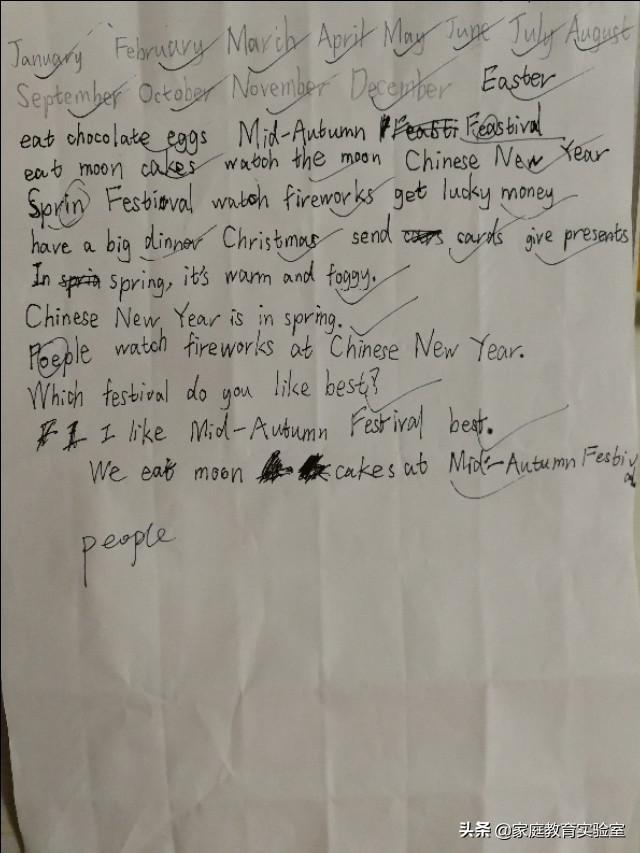 January February March April May June July August
September October November December Easter
eat chocolate eggs Mid-Autumn Feastival
eat moon cakes watch the moon Chinese New Year
Sprin Festival watch fireworks get lucky money
have a big dinner Christmas send cards give presents
In spring, it's warm and foggy.
Chinese New Year is in spring.
Poeple watch fireworks at Chinese New Year.
Which festival do you like best?
I like Mid-Autumn Festival best.
We eat moon cakes at Mid-Autumn Festival
people
头条 @家庭教育实验室